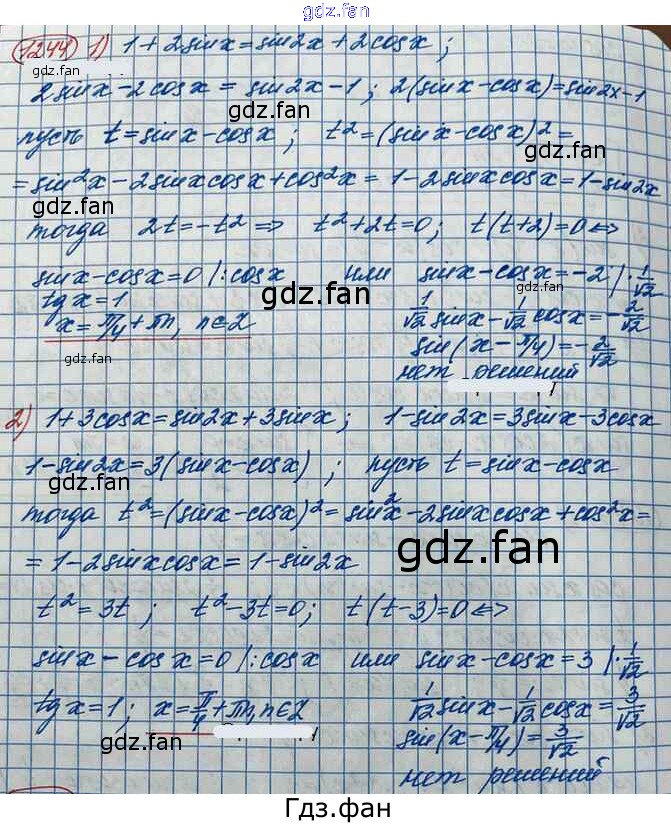 gdz.fan
1244 1) 1 + 2sinx = sin2x + 2cosx ;
gdz.fan gdz.fan
2sinx - 2cosx = sin2x - 1 ; 2(sinx - cosx) = sin2x - 1
gdz.fan
пусть t = sinx - cosx ; t² = (sinx - cosx)² =
gdz.fan
= sin²x - 2sinxcosx + cos²x = 1 - 2sinxcosx = 1 - sin2x
gdz.fan gdz.fan
тогда 2t = -t² => t² + 2t = 0 ; t(t+2) = 0 <=>
sinx - cosx = 0 |: cosx или sinx - cosx = -2 | · 1/√2
gdz.fan gdz.fan
tgx = 1 1/√2 sinx - 1/√2 cosx = -2/√2
x = π/4 + πn, n∈Z sin(x - π/4) = -2/√2
gdz.fan
нет решений
2) 1 + 3cosx = sin2x + 3sinx ; 1 - sin2x = 3sinx - 3cosx
1 - sin2x = 3(sinx - cosx) ; пусть t = sinx - cosx
gdz.fan gdz.fan
тогда t² = (sinx - cosx)² = sin²x - 2sinxcosx + cos²x =
= 1 - 2sinxcosx = 1 - sin2x
gdz.fan
t² = 3t ; t² - 3t = 0 ; t(t-3) = 0 <=>
gdz.fan
sinx - cosx = 0 |: cosx или sinx - cosx = 3 | · 1/√2
tgx = 1 ; x = π/4 + πn, n∈Z 1/√2 sinx - 1/√2 cosx = 3/√2
gdz.fan gdz.fan
sin(x - π/4) = 3/√2
нет решений
Гдз.фан